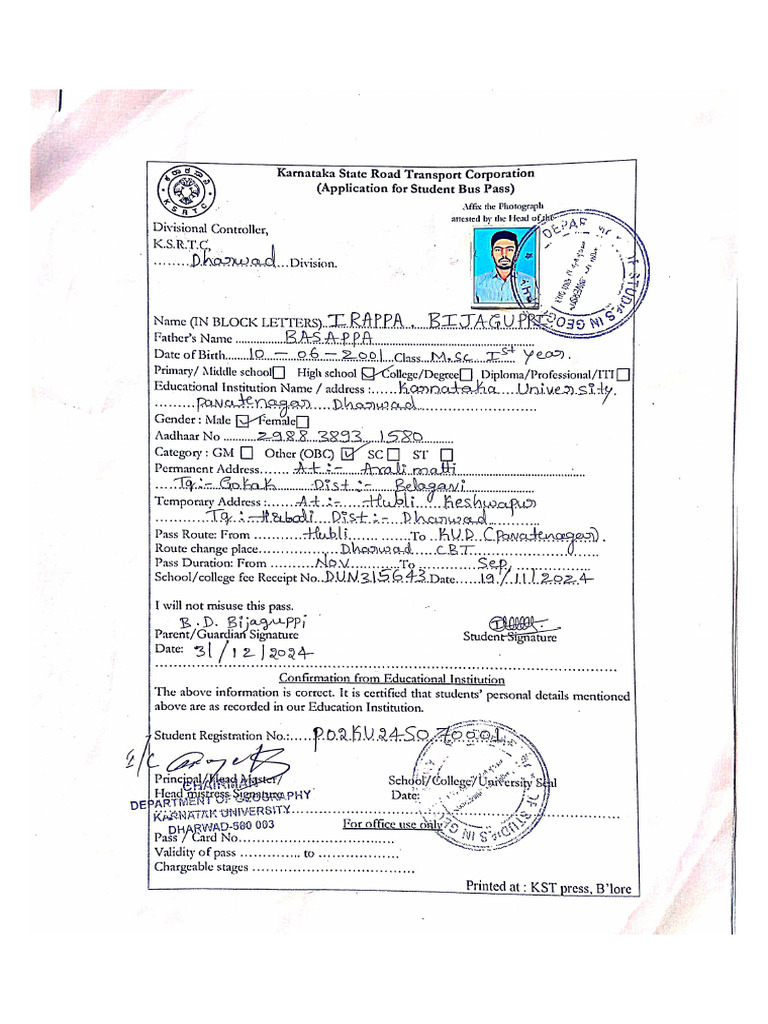 Karnataka State Road Transport Corporation
(Application for Student Bus Pass)
K S R T C
Affix the Photograph
attested by the Head of the
Divisional Controller,
K.S.R.T.C.
........Dharwad...Division.
Name (IN BLOCK LETTERS) IRAPPA . BIJAGUPPI
Father's Name ............BASAPPA............
Date of Birth......10-06-2001 Class M.Sc Ist year.
Primary/ Middle school High school College/Degree Diploma/Professional/ITI
Educational Institution Name / address :......Karnataka University.
........Pavatenagar Dharwad........
Gender : Male Female
Aadhaar No ..........2988 3893 1580
Category : GM Other (OBC) SC ST
Permanent Address...... At :- Aralimatti
Tq :- Gokak Dist :- Belagavi
Temporary Address :...... At :- Hubli Keshwapur
Tq :- Hubali Dist :- Dharwad
Pass Route: From ..........Hubli..........To KUD (Pavatenagar).
Route change place..........Dharwad CBT..........
Pass Duration: From ..........Nov..........To ..........Sep,..........
School/college fee Receipt No. DUN315643 Date.....19/11/2024
I will not misuse this pass.
B.D. Bijaguppi
Parent/Guardian Signature Student Signature
Date: 31/12/2024
Confirmation from Educational Institution
The above information is correct. It is certified that students' personal details mentioned
above are as recorded in our Education Institution.
Student Registration No.:.....P02KU24S070001
Principal/Head Master/ School/College/University Seal
Head mistress Signature Date:
CHAIRMAN
DEPARTMENT OF GEOGRAPHY
KARNATAK UNIVERSITY
DHARWAD-580 003
For office use only
Pass / Card No..........
Validity of pass .............. to ..................
Chargeable stages ....................................
Printed at : KST press, B'lore